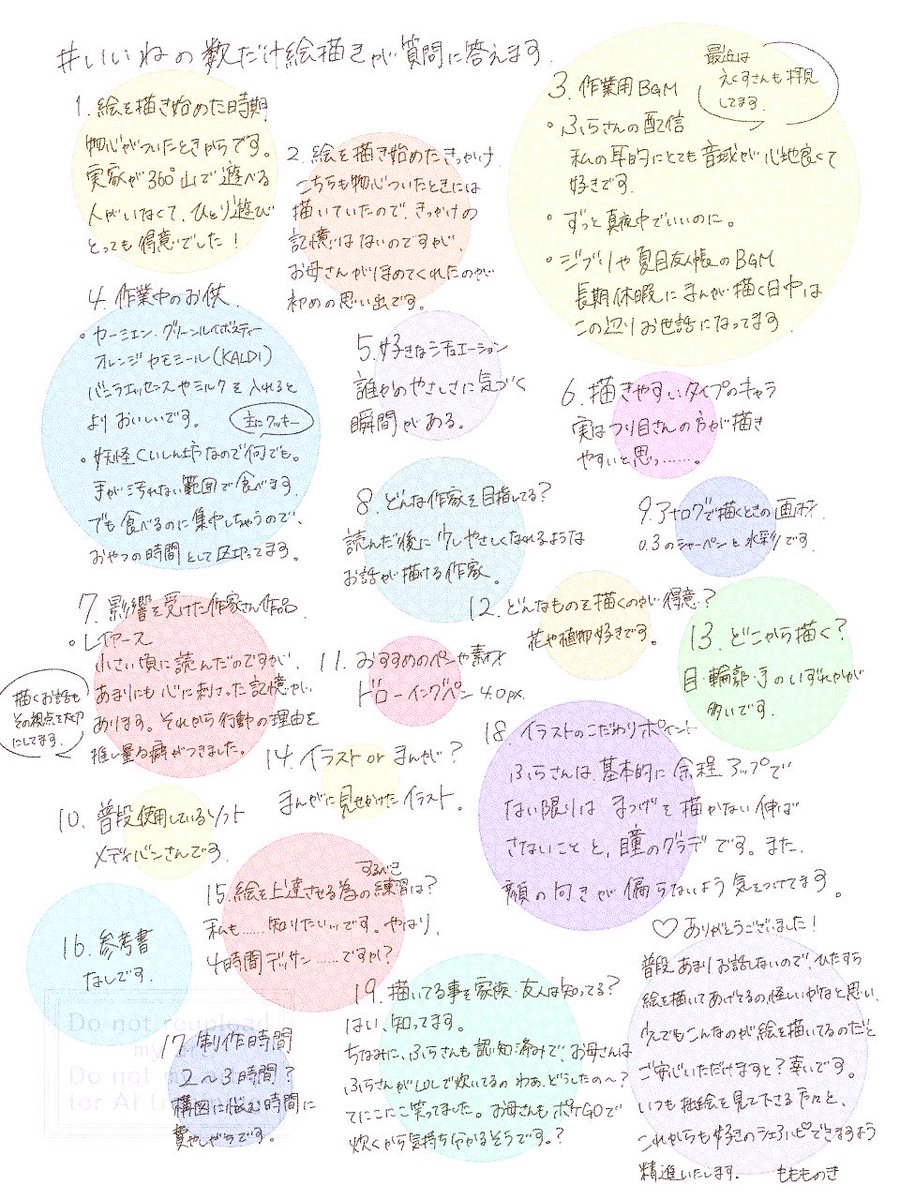 #いいねの数だけ絵描きが質問に答えます.
1. 絵を描き始めた時期
物心がついたときからです。
実家が360°山で遊べる
人がいなくて、ひとり遊び
とっても得意でした！
2. 絵を描き始めたきっかけ
こちらも物心ついたときには
描いていたので、きっかけの
記憶はないのですが、
お母さんがほめてくれたのが
初めの思い出です。
3. 作業用BGM
最近は
えくすさんも拝見
してます.
・ふらさんの配信
私の耳的にとても音域が心地良くて
好きです.
・ずっと真夜中でいいのに。
・ジブリや夏目友人帳のBGM
長期休暇にまんが描く日中は
この辺りお世話になってます.
4. 作業中のお供.
・カーミエン、グリーンルイボスティー
オレンジカモミール(KALDI)
バニラエッセンスやミルクを入れると
よりおいしいです。
主にクッキー
・妖怪くいしん坊なので何でも。
手が汚れない範囲で食べます.
でも食べるのに集中しちゃうので、
おやつの時間として区切ってます。
5. 好きなシチュエーション
誰かのやさしさに気づく
瞬間がある。
6. 描きやすいタイプのキャラ
実はつり目さんの方が描き
やすいと思っ……。
7. 影響を受けた作家さん作品
・レイアース
小さい頃に読んだのですが、
あまりにも心に刺さった記憶が
あります。それから行動の理由を
推し量る癖がつきました。
描くお話も
その視点を大切
にしてます.
8. どんな作家を目指してる？
読んだ後に少しやさしくなれるような
お話が描ける作家。
9. アナログで描くときの画材.
0.3のシャーペンと水彩です.
10. 普段使用しているソフト
メディバンさんです.
11. おすすめのペンや素材
ドローイングペン 40px.
12. どんなものを描くのが得意？
花や植物好きです。
13. どこから描く？
目・輪郭・手のいずれかが
多いです.
14. イラスト or まんが？
まんがに見せかけたイラスト。
15. 絵を上達させる為のするべき練習は？
私も……知りたいいです。やはり、
4時間デッサン……ですか？
16. 参考書
なしです.
17. 制作時間
2〜3時間？
構図に悩む時間に
費やしがちです。
18. イラストのこだわりポイント
ふらさんは基本的に余程アップで
ない限りはまつげを描かない伸ば
さないことと、瞳のグラデです。また、
顔の向きが偏らないよう気をつけてます。
19. 描いてる事を家族・友人は知ってる？
はい、知ってます。
ちなみに、ふらさんも認知済みで、お母さんは
ふらさんがLOLで炊いてるのわぁ、どうしたの〜？
てにこにこ笑ってました。お母さんもポケGOで
炊くから気持ち分かるそうです。？
♡ありがとうございました！
普段あまりお話しないので、ひたすら
絵を描いてあげてるの、怪しいかなと思い、
少しでもこんなのが絵を描いてるのだと
ご安心いただけますと？幸いです。
いつも拙絵を見て下さる方々と、
これからも好きのシェアハピできますよう
精進いたします.
もももののき
Do not reupload
my
Do not
for AI